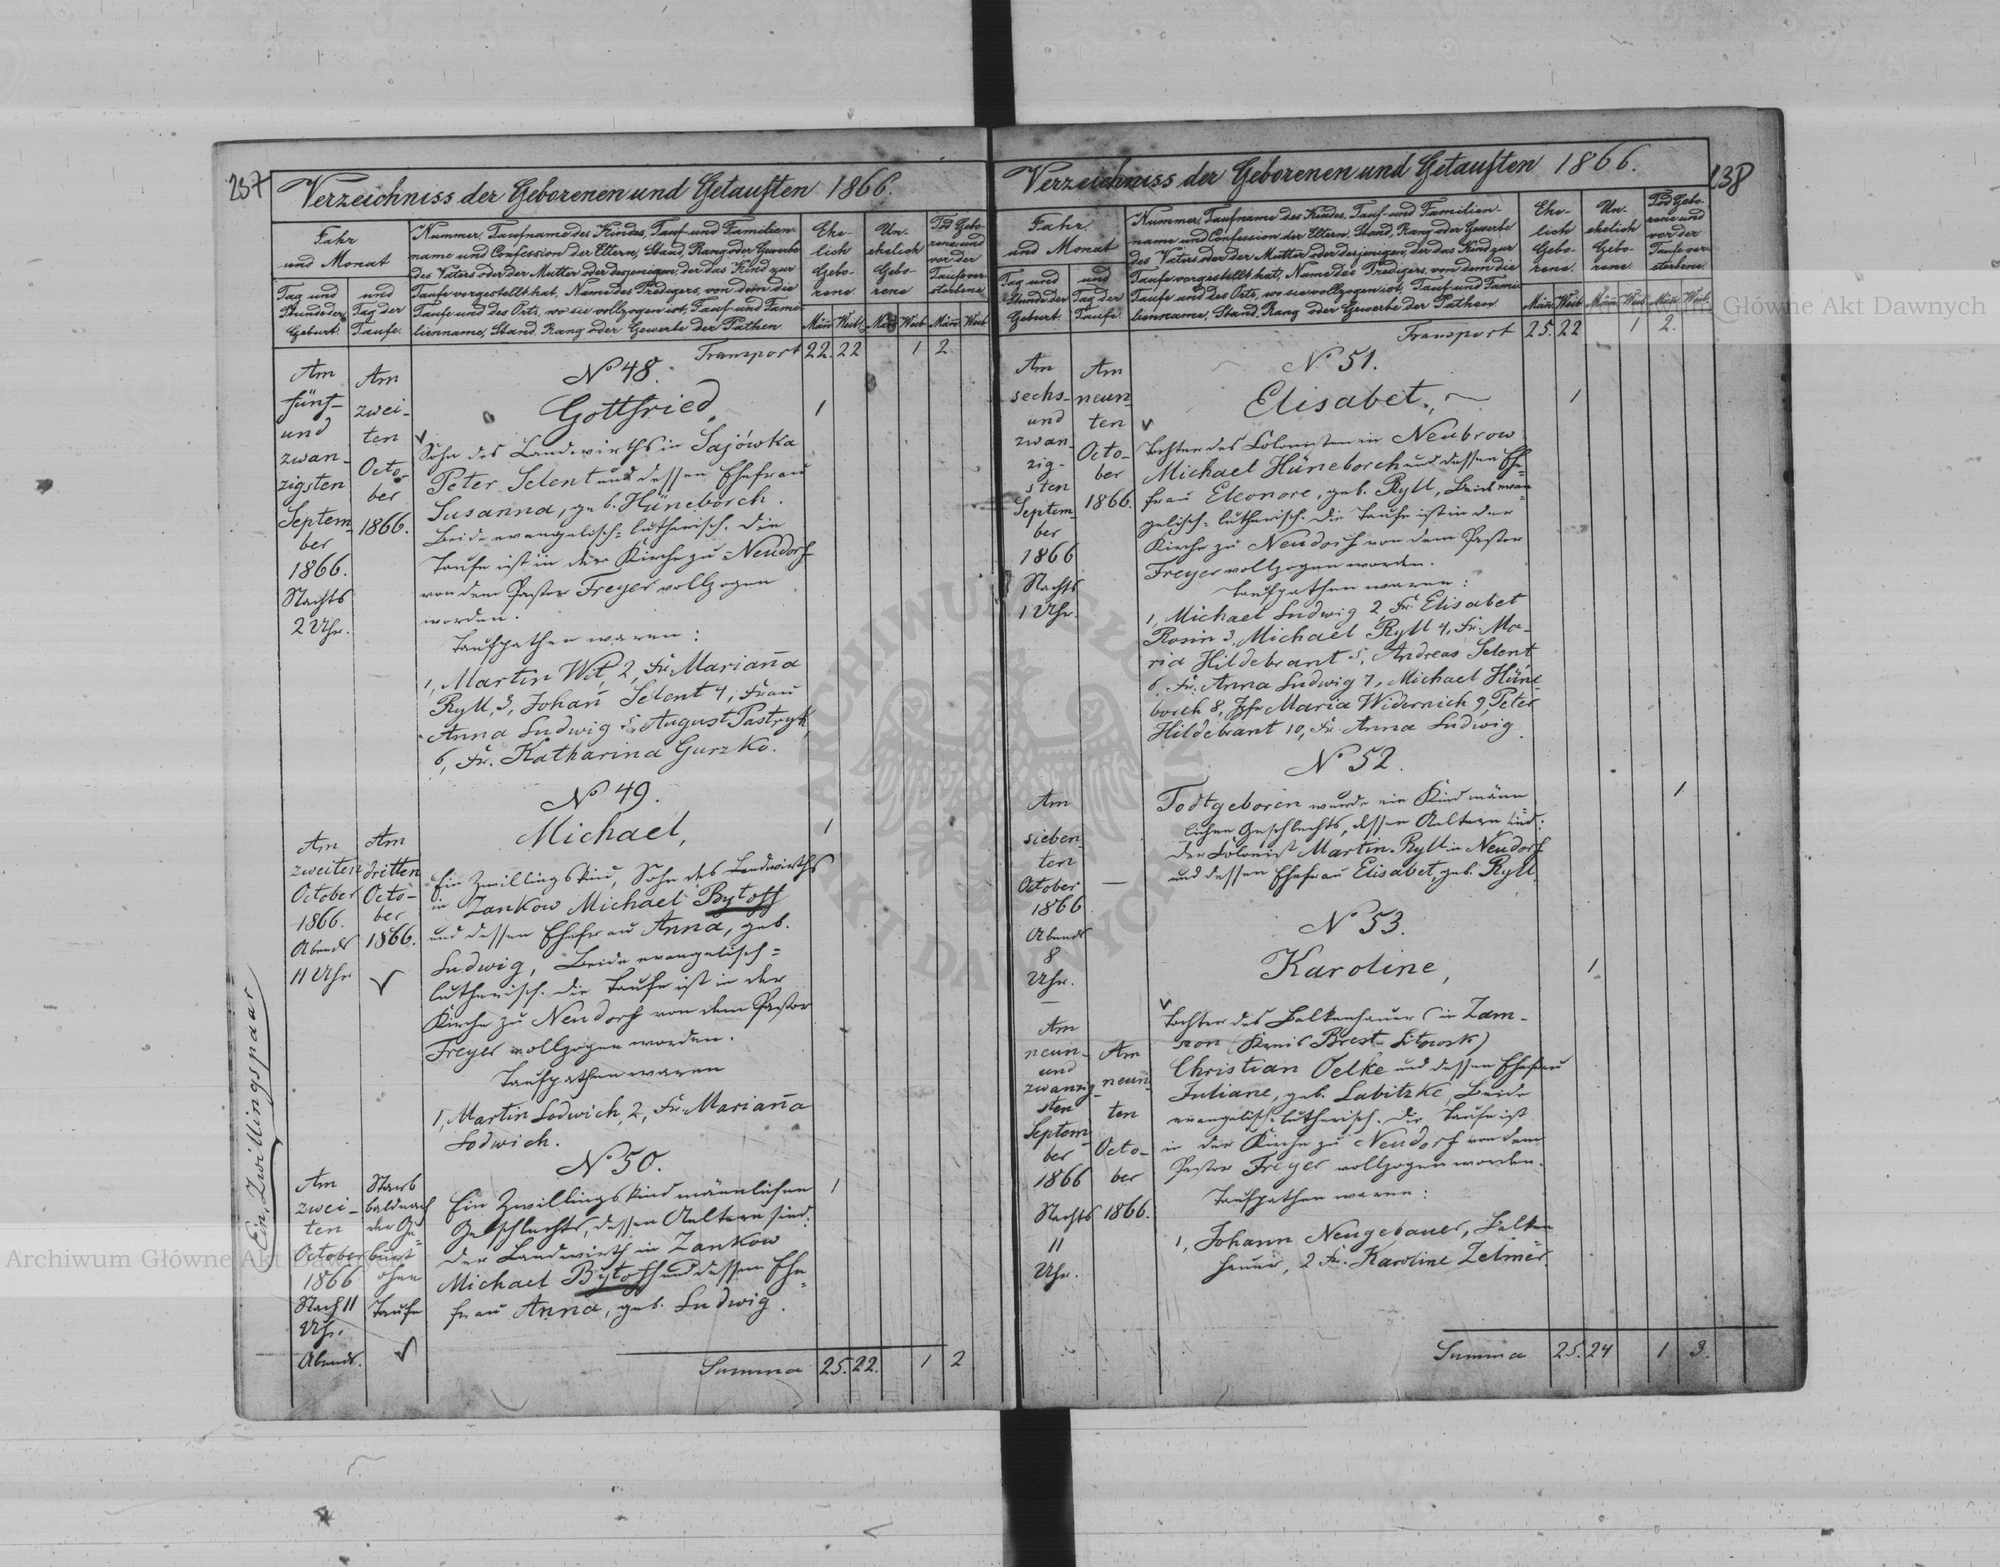 237
Verzeichniss der Geborenen und Getauften 1866.
Jahr
und Monat
Tag und
Stunde der
Geburt.
und
Tag der
Taufe.
Nummer, Taufname des Kindes, Tauf- und Familien-
name und Confession der Eltern, Stand, Rang oder Gewerbe
des Vaters oder der Mutter oder desjenigen, der das Kind zur
Taufe vorgestellt hat, Name des Predigers, von dem die
Taufe und des Orts, wo sie vollzogen ist, Tauf- und Fami-
lienname, Stand, Rang oder Gewerbe der Pathen
Ehe-
lich
Gebo-
rene.
Un-
ehelich
Gebo-
rene
Tod Gebo-
rene und
vor der
Taufe ver-
storbene
Män. Weib. Män. Weib. Män. Weib.
Transport 22. 22 1 2
Am
fünf-
und
zwan-
zigsten
Septem-
ber
1866.
Nachts
2 Uhr.
Am
zwei-
ten
Octo-
ber
1866.
No 48.
Gottfried, 1
Sohn des Landwirths in Sajówka
Peter Selent und dessen Ehefrau
Susanna, geb. Hüneborch.
Beide evangelisch-lutherisch. Die
Taufe ist in der Kirche zu Neudorf
von dem Pastor Freyer vollzogen
worden.
Taufpathen waren:
1, Martin Wit, 2, Fr. Marianna
Ryll, 3, Johann Selent 4, Frau
Anna Ludwig 5, August Pastryk
6, Fr. Katharina Gurzko.
Ein Zwillingspaar
Am
zweiten
October
1866.
Abends
11 Uhr
Am
dritten
Octo-
ber
1866.
No 49.
Michael, 1
Ein Zwillingskind, Sohn des Landwirths
in Zankow Michael Bytoff
und dessen Ehefrau Anna, geb.
Ludwig, Beide evangelisch=
lutherisch. Die Taufe ist in der
Kirche zu Neudorf von dem Pastor
Freyer vollzogen worden.
Taufpathen waren
1, Martin Lodwich, 2, Fr. Marianna
Lodwich.
Am
zwei-
ten
October
1866
Nach 11
Uhr.
Abends.
Starb
bald nach
der Ge-
burt
ohne
Taufe
No 50.
Ein Zwillingskind männlichen 1
Geschlechts, dessen Aeltern sind:
der Landwirth in Zankow
Michael Bytoff und dessen Ehe-
frau Anna, geb. Ludwig.
Summa 25. 22. 1 2
238
Verzeichniss der Geborenen und Getauften 1866.
Jahr
und Monat
Tag und
Stunde der
Geburt.
und
Tag der
Taufe.
Nummer, Taufname des Kindes, Tauf- und Familien-
name und Confession der Eltern, Stand, Rang oder Gewerbe
des Vaters oder der Mutter oder desjenigen, der das Kind zur
Taufe vorgestellt hat, Name des Predigers, von dem die
Taufe und des Orts, wo sie vollzogen ist, Tauf- und Fami-
lienname, Stand, Rang oder Gewerbe der Pathen
Ehe-
lich
Gebo-
rene.
Un-
ehelich
Gebo-
rene
Tod Gebo-
rene und
vor der
Taufe ver-
storbene.
Män. Weib. Män. Weib. Män. Weib.
Transport 25. 22 1 2.
Am
sechs-
und
zwan-
zig-
sten
Septem-
ber
1866
Nachts
1 Uhr.
Am
neun-
ten
Octo-
ber
1866.
No 51.
Elisabet, 1
Tochter des Colonisten in Neubrow
Michael Hüneborch und dessen Ehe=
frau Eleonore, geb. Ryll, Beide evan=
gelisch-lutherisch. Die Taufe ist in der
Kirche zu Neudorf von dem Pastor
Freyer vollzogen worden.
Taufpathen waren:
1, Michael Ludwig 2, Fr. Elisabet
Rosin 3, Michael Ryll 4, Fr. Ma-
ria Hildebrant 5, Andreas Selent
6, Fr. Anna Ludwig 7, Michael Hüne-
borch 8, Jgfr. Maria Widernich 9, Peter
Hildebrant 10, Fr. Anna Ludwig.
Am
sieben-
ten
October
1866
Abends
8
Uhr.
No 52.
Todtgeboren wurde ein Kind männ- 1
lichen Geschlechts, dessen Aeltern sind:
der Colonist Martin Ryll in Neudorf
und dessen Ehefrau Elisabet, geb. Ryll.
Am
neun-
und
zwanzig-
sten
Septem-
ber
1866
Nachts
11
Uhr.
Am
neun-
ten
Octo-
ber
1866.
No 53.
Karoline, 1
Tochter des Balkenhauers in Zam-
(Kreis Brest-Litowsk)
Christian Oelke und dessen Ehefrau
Juliane, geb. Labitzke, Beide
evangelisch-lutherisch. Die Taufe ist
in der Kirche zu Neudorf von dem
Pastor Freyer vollzogen worden.
Taufpathen waren:
1, Johann Neugebauer, Balken-
hauer, 2 Fr. Karoline Zelmer.
Summa 25. 24 1 3.
Archiwum Główne Akt Dawnych
Archiwum Główne Akt Dawnych
ARCHIWUM GŁÓWNE AKT DAWNYCH